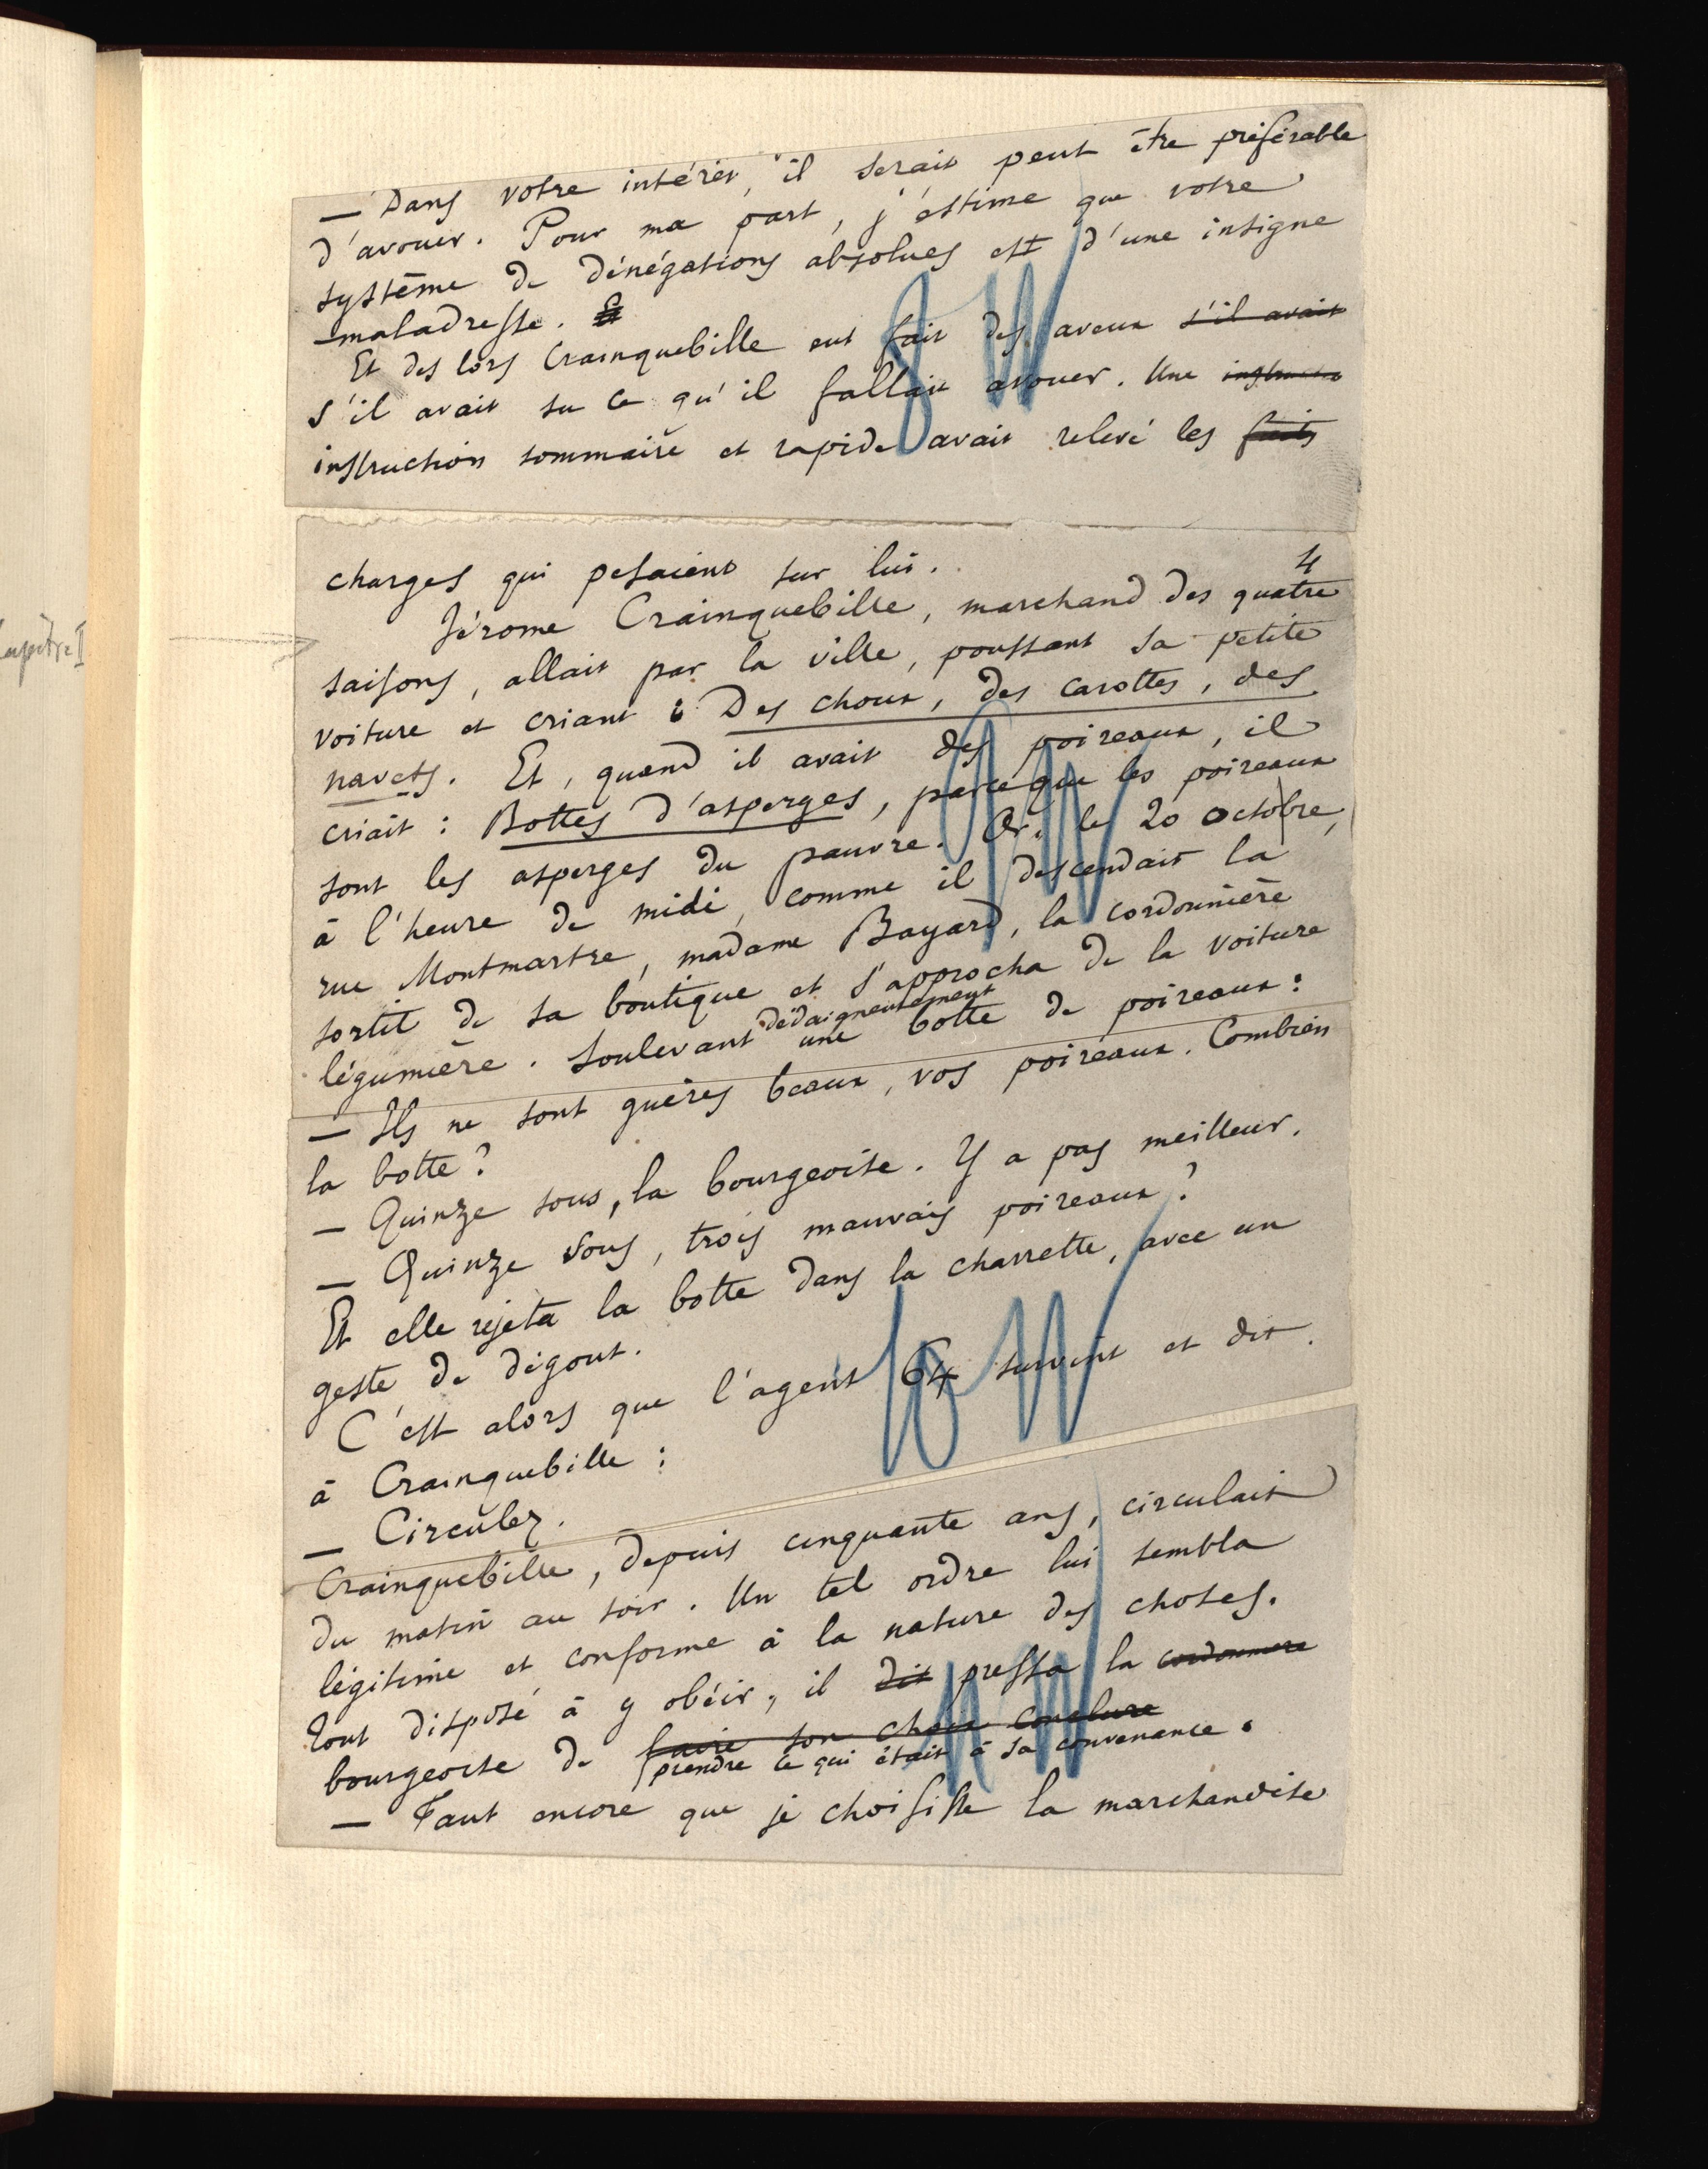 — Dans votre intérêt, il serait peut être préférable
d'avouer. Pour ma part, j'estime que votre
système de dénégations absolues est d'une insigne
maladresse.
Et dès lors Crainquebille eut fait des aveux s'il avait
s'il avait su ce qu'il fallait avouer. Une
instruction sommaire et rapide avait relevé les faits
charges qui pesaient sur lui.
4
Jérome Crainquebille, marchand des quatre
saisons, allait par la ville, poussant sa petite
voiture et criant : Des choux, des carottes, des
navets. Et, quand il avait des poireaux, il
criait : Bottes d'asperges, parce que les poireaux
sont les asperges du pauvre. Or, le 20 octobre,
à l'heure de midi, comme il descendait la
rue Montmartre, madame Bayard, la cordonnière
sortit de sa boutique et s'approcha de la voiture
dédaigneusement
légumière. Soulevant une botte de poireaux :
— Ils ne sont guères beaux, vos poireaux. Combien
la botte ?
— Quinze sous, la bourgeoise. Y a pas meilleur.
— Quinze sous, trois mauvais poireaux ?
Et elle rejeta la botte dans la charrette, avec un
geste de dégout.
C'est alors que l'agent 64 survint et dit
à Crainquebille :
— Circulez.
Crainquebille, depuis cinquante ans, circulait
du matin au soir. Un tel ordre lui sembla
légitime et conforme à la nature des choses.
Tout disposé à y obéir, il dit pressa la cordonnere
bourgeoise de faire son choix conclure
prendre ce qui était à sa convenance.
— Faut encore que je choisisse la marchandise